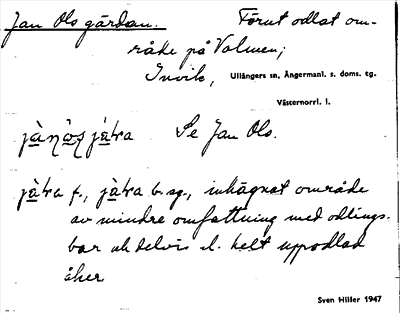 Jan Ols gårdan. Förut odlat om-
råde på Valmen;
Invik, Ullångers sn, Ångermanl. s. doms. tg.
Västernorrl. l.
Se Jan Ols.
f., b. sg., inhägnat område
av mindre omfattning med odlings-
bar och delvis l. helt uppodlad
åker
Sven Hiller 1947